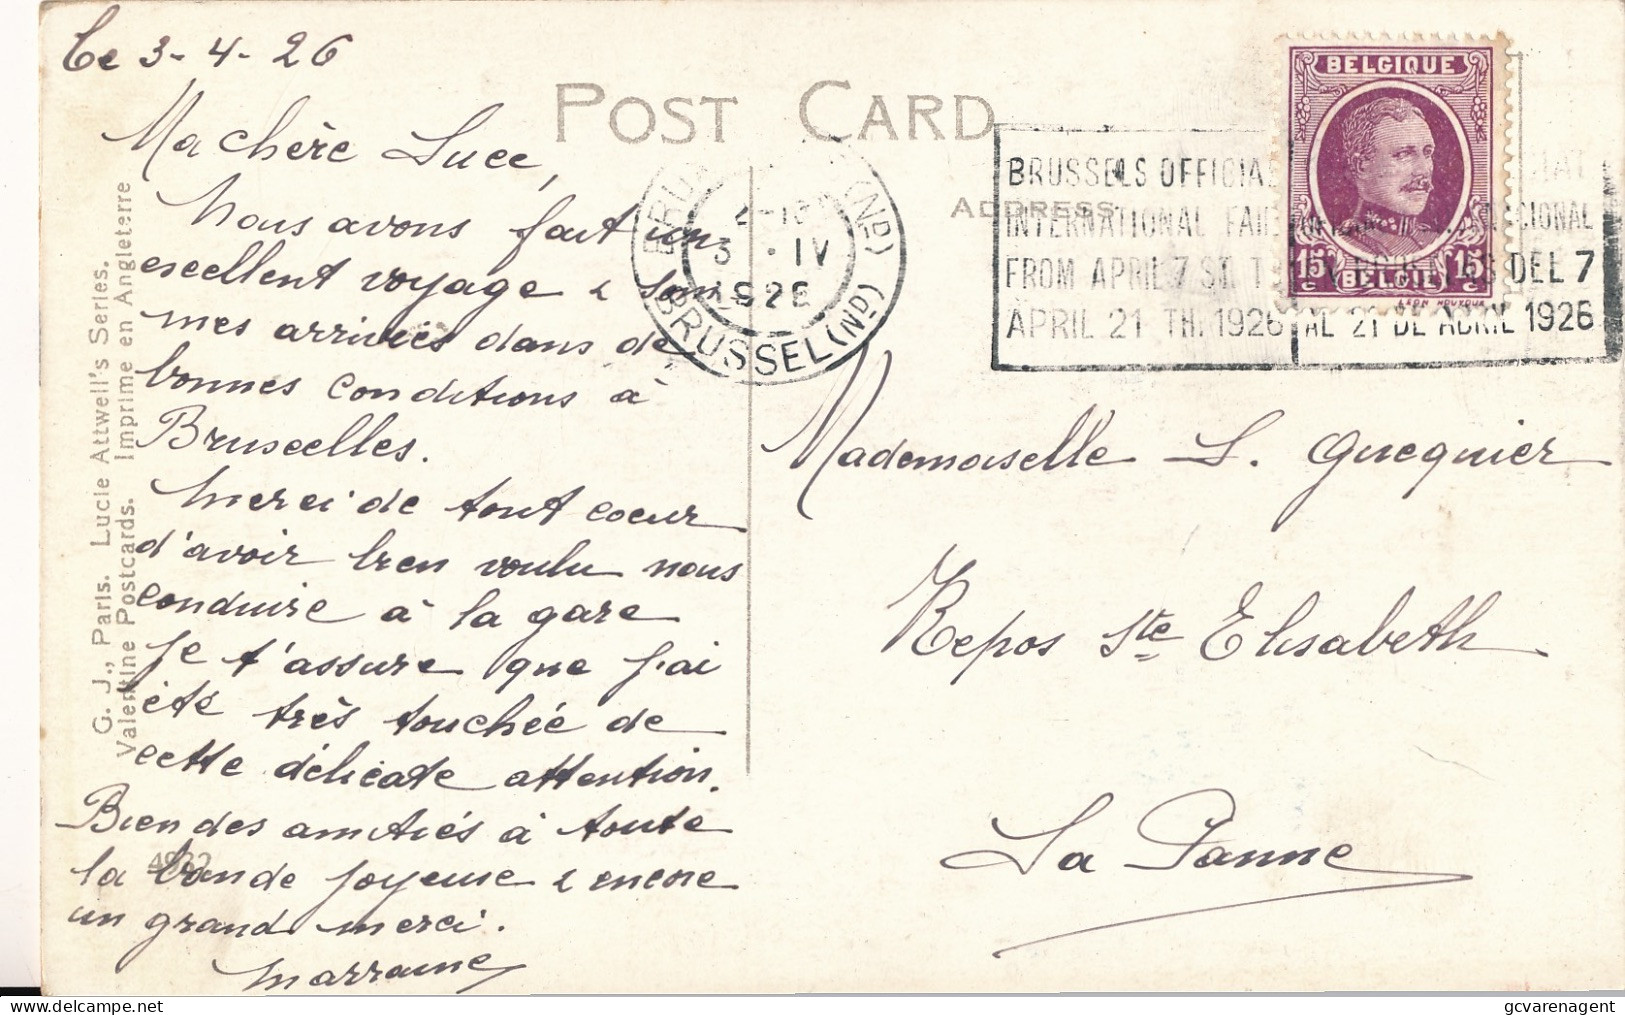 Ce 3-4-26
Ma chère Luce,
Nous avons fait un
excellent voyage & som
mes arrivés dans de
bonnes conditions à
Bruxelles.
Merci de tout coeur
d'avoir bien voulu nous
conduire à la gare
Je t'assure que j'ai
été très touchée de
cette délicate attention.
Bien des amitiés à toute
la bande joyeuse & encore
un grand merci.
Marraine
G. J., Paris. Lucie Attwell's Series.
Valentine Postcards. Imprime en Angleterre
4932
POST CARD
ADDRESS
BRUSSEL (ND)
3 · IV
1926
BRUSSELS OFFICIAL
INTERNATIONAL FAIR
FROM APRIL 7
APRIL 21 TH. 1926
DEL 7
AL 21 DE ABRIL 1926
BELGIQUE
15 15
c c
BELGIE
LEON HOUYOUX
Mademoiselle L. Guequier
Repos Ste Elisabeth
La Panne
gcvarenagent